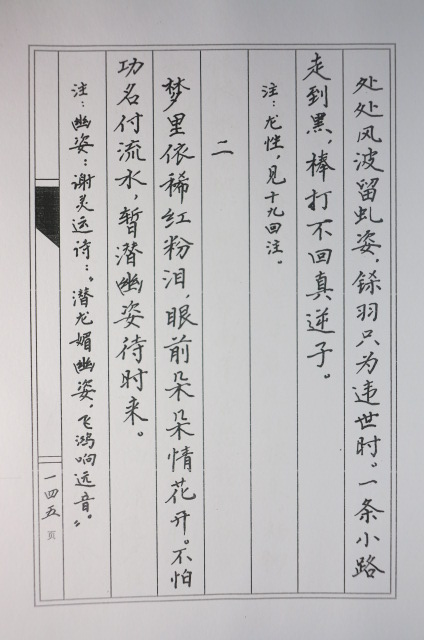 处处风波留虬姿，铩羽只为违世时。一条小路
走到黑，棒打不回真逆子。
注：龙性，见十九回注。
二
梦里依稀红粉泪，眼前朵朵情花开。不怕
功名付流水，暂潜幽姿待时来。
注：幽姿：谢灵运诗：“潜龙媚幽姿，飞鸿响远音”。
一四五页